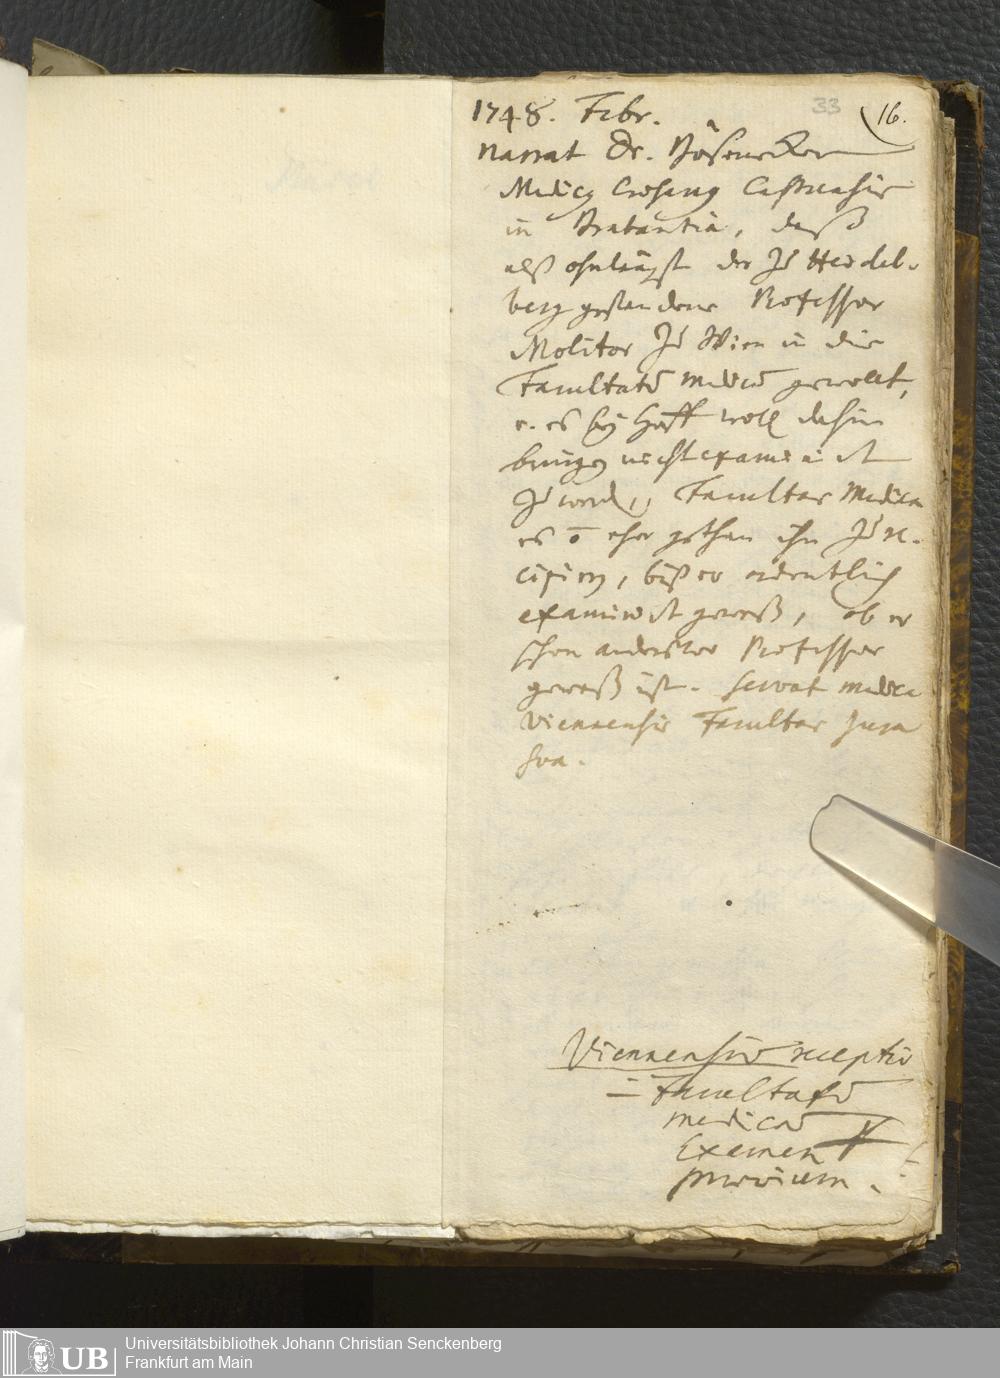 33
16.
1748. Febr.
narrat Dr.
Medicus Castrensis
in Brabantia, daß
alß ohnlängst der zu Heidel-
berg gestandene Professor
Molitor zu Wien in die
Facultatem medicam gewollt,
es bey Hoff woll dahin
bringen nicht examinirt
zu werden, Facultas Medica
es eher gethan ihn zu re-
cipiren, biß er ordentlich
examinirt geweß, ob er
schon Professor
geweß ist. servat medica
Viennensis Facultas jura
sua.
Viennensium receptio
in Facultatem
medicam
Examen
praevium.
UB
Universitätsbibliothek Johann Christian Senckenberg
Frankfurt am Main